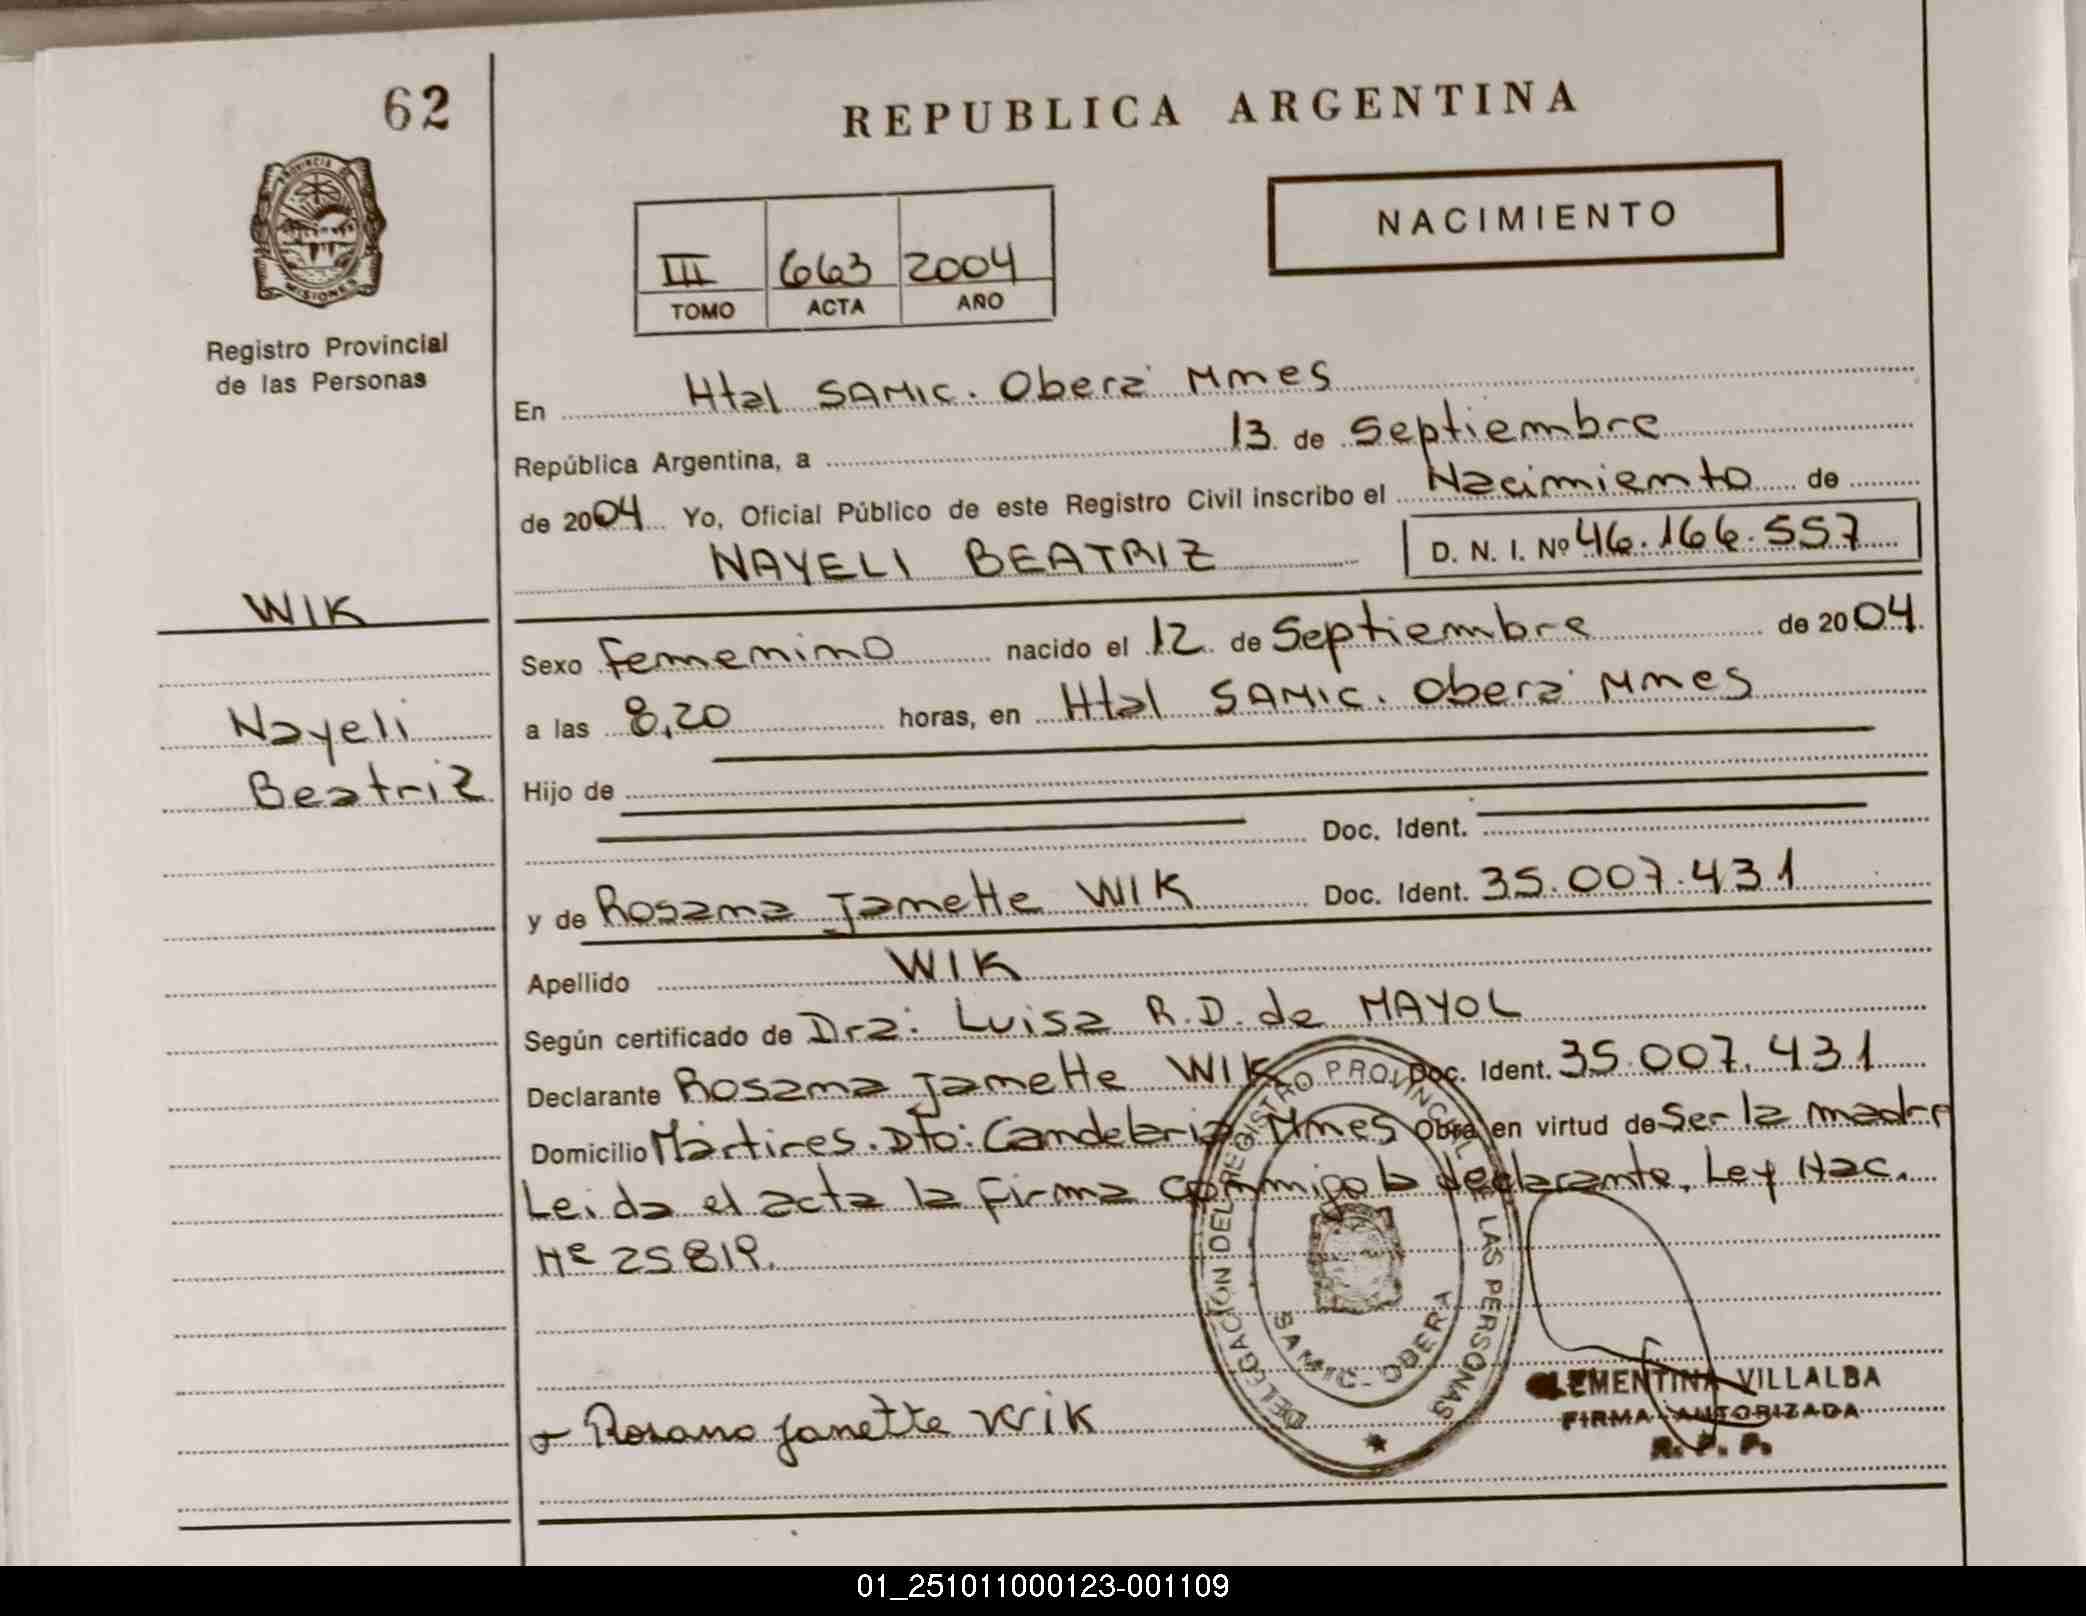 62
REPUBLICA ARGENTINA
PROVINCIA
MISIONES
Registro Provincial
de las Personas
NACIMIENTO
III 663 2004
TOMO ACTA AÑO
En Htal SAMIC. Oberá Mnes
República Argentina, a 13 de Septiembre
de 2004 Yo, Oficial Público de este Registro Civil inscribo el Nacimiento de
NAYELI BEATRIZ D. N. I. Nº 46.166.557
WIK
Nayeli
Beatriz
Sexo femenino nacido el 12 de Septiembre de 2004
a las 8,20 horas, en Htal SAMIC. Oberá Mnes
Hijo de
Doc. Ident.
y de Rosana Janette WIK Doc. Ident. 35.007.431
Apellido WIK
Según certificado de Dra: Luisa R.D. de MAYOL
Declarante Rosana Janette WIK Doc. Ident. 35.007.431
Domicilio Mártires. Dto: Candelaria Mnes Obra en virtud de Ser la madre
Leida el acta la firma conmigo la declarante. Ley Nac.
Nº 25819.
DELEGACION DEL REGISTRO PROVINCIAL DE LAS PERSONAS
SAMIC - OBERA
Rosana Janette Wik
CLEMENTINA VILLALBA
FIRMA AUTORIZADA
R. P. P.
01_251011000123-001109